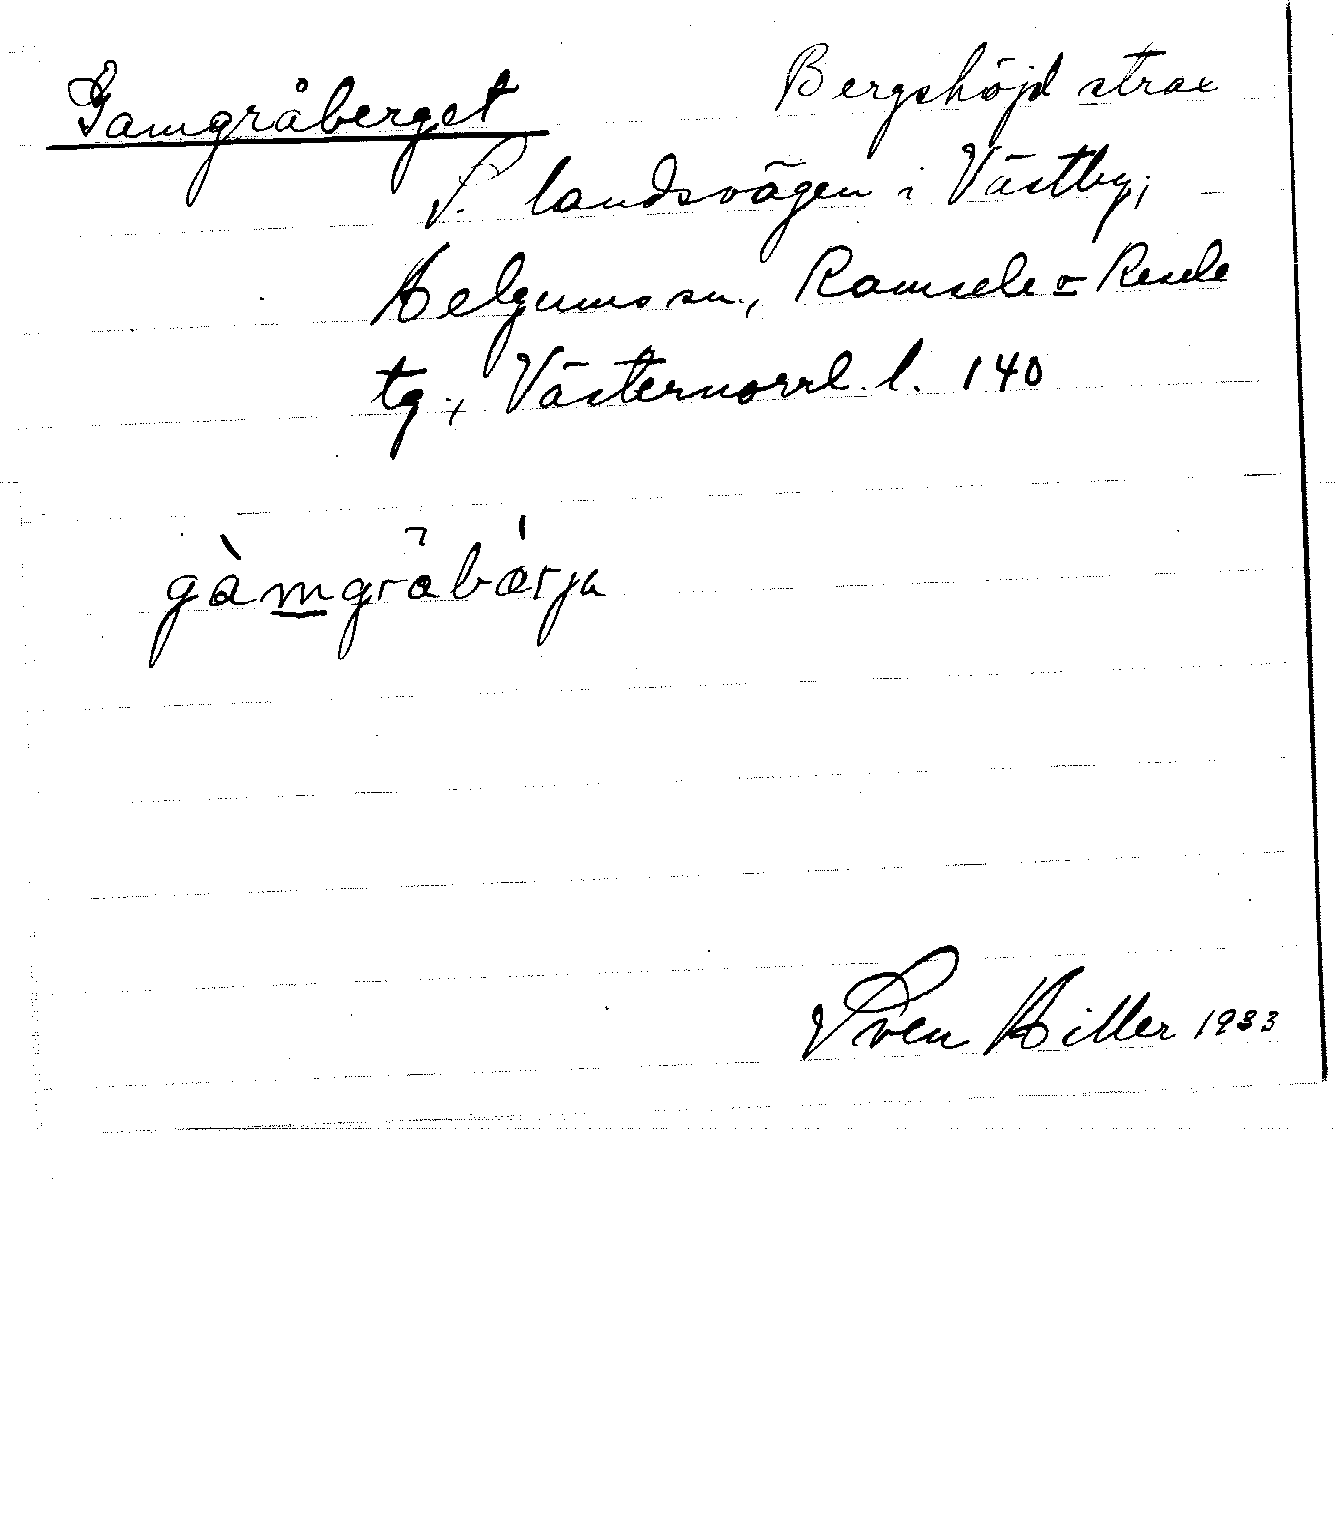 Gamgråberget Bergshöjd strax
S. landsvägen i Västby,
Helgums sn., Ramsele o Resele
tg., Västernorrl. l. 140
gàmgråbárja
Sven Hiller 1933